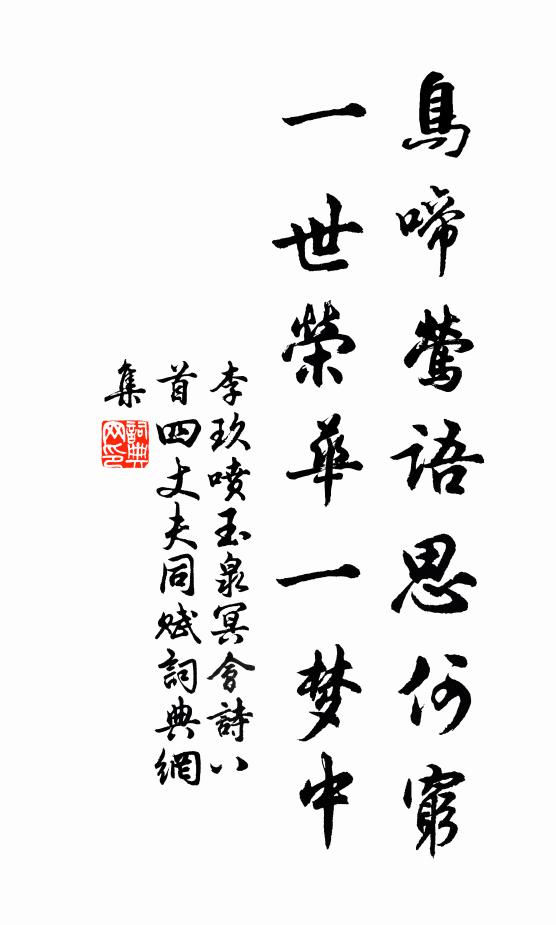 鳥啼鶯語思何窮
一世榮華一梦中
李玖噴玉泉冥會詩八
首四丈夫同賦詞典網
集
詞典
网印